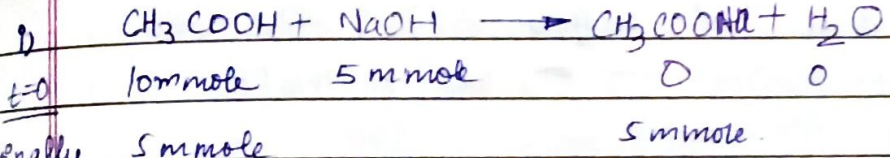 1) CH3 COOH + NaOH → CH3COONa + H2O
t=0 10mmole 5 mmole 0 0
5 mmole 5 mmole.